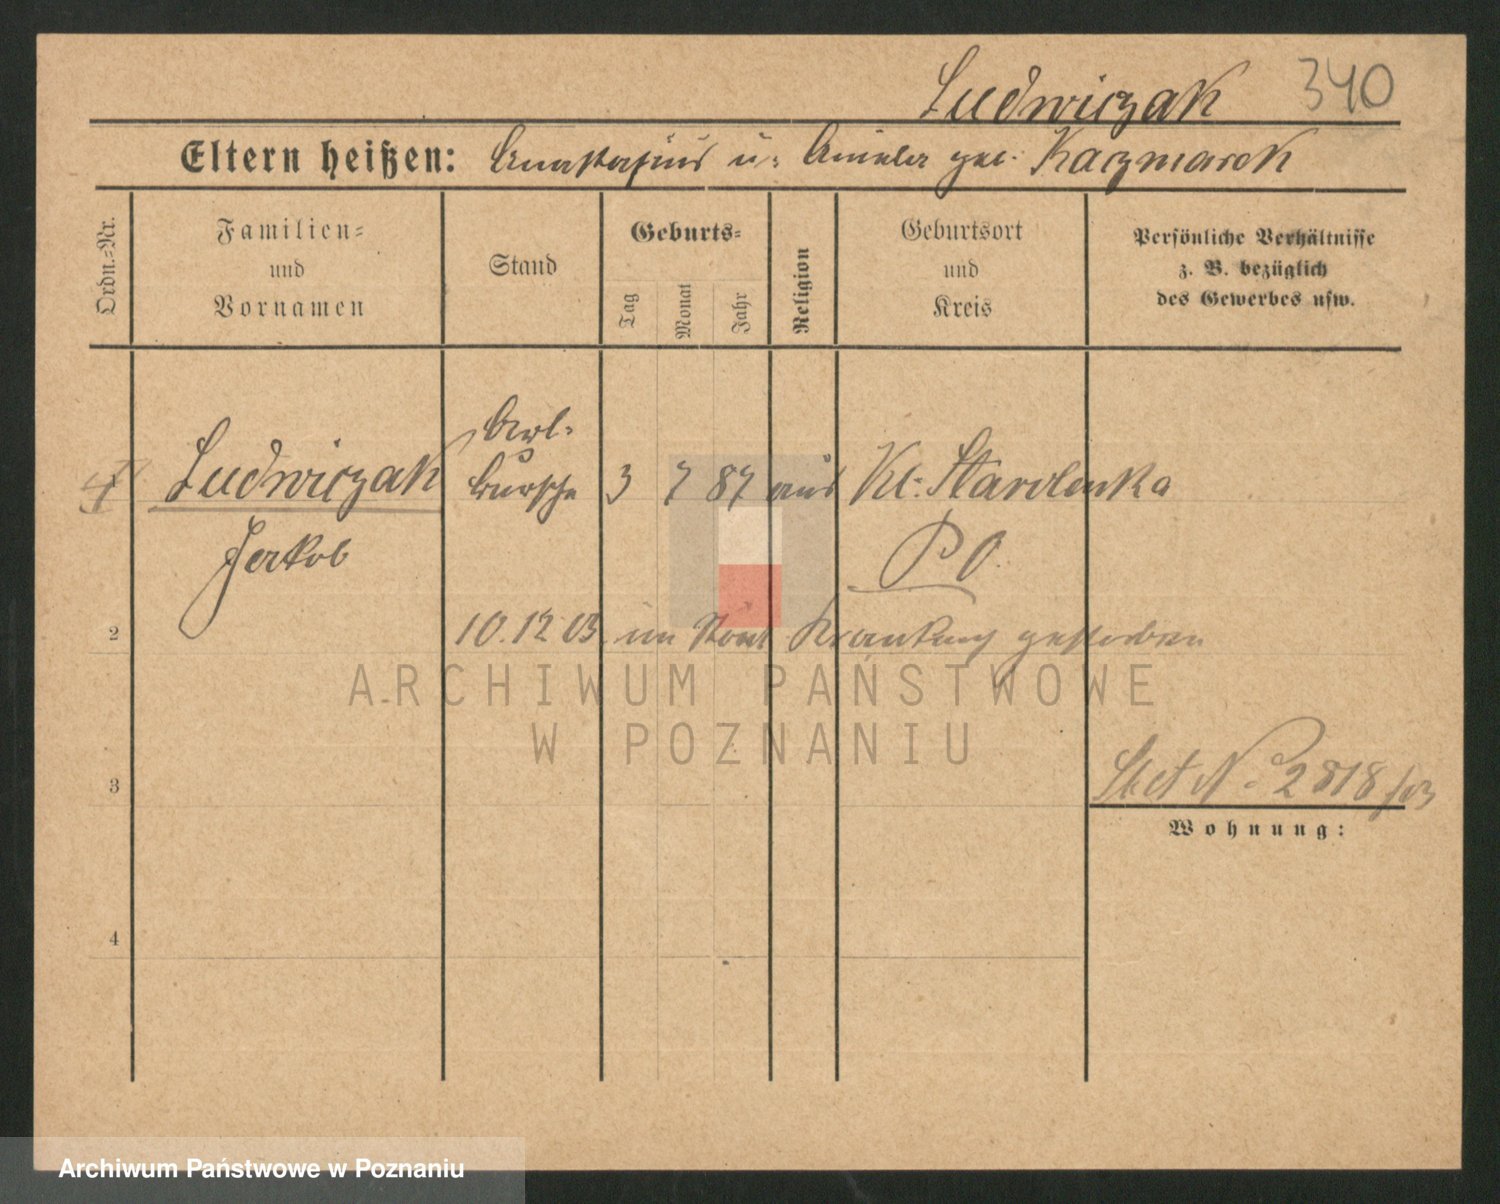 Ludwiczak 340
Eltern heißen: Anastasius u. Aniela geb. Kaczmarek
Ordn.=Nr.
Familien=
und
Vornamen
Stand
Geburts=
Tag
Monat
Jahr
Religion
Geburtsort
und
Kreis
Persönliche Verhältnisse
z. B. bezüglich
des Gewerbes usw.
Arb.=
Ludwiczak bursche 3 7 87 aus Kl. Starolenka
Jakob
P. O.
2
10.12 03 im Stadt Krankenh gestorben
ARCHIWUM PAŃSTWOWE
W POZNANIU
3
No 2818/03
Wohnung:
4
Archiwum Państwowe w Poznaniu